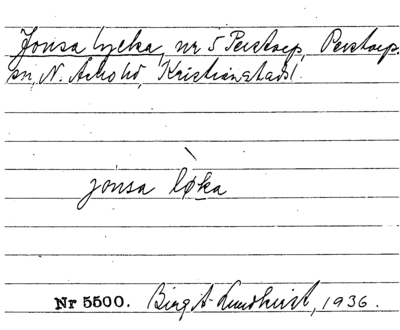 Jonsa lycka, nr 5 Perstorp, Perstorps
sn, N. Åsbo hd, Kristianstads l.
jònsa lø̀ka
Nr 5500. Birgit Lundkvist, 1936.